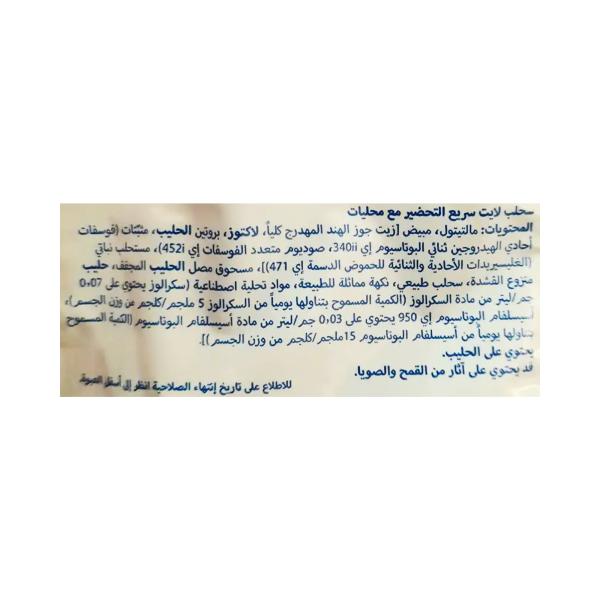 سحلب لايت سريع التحضير مع محليات
المحتويات: مالتيتول، مبيض [زيت جوز الهند المهدرج كلياً، لاكتوز، بروتين الحليب، مثبتات (فوسفات
أحادي الهيدروجين ثنائي البوتاسيوم إي 340ii، صوديوم متعدد الفوسفات إي 452i)، مستحلب نباتي
(الغليسيريدات الأحادية والثنائية للحموض الدسمة إي 471)]، مسحوق مصل الحليب المجفف، حليب
منزوع القشدة، سحلب طبيعي، نكهة مماثلة للطبيعة، مواد تحلية اصطناعية (سكرالوز يحتوي على 0,07
جم/ليتر من مادة السكرالوز (الكمية المسموح بتناولها يومياً من السكرالوز 5 ملجم/كلجم من وزن الجسم)،
أسيسلفام البوتاسيوم إي 950 يحتوي على 0,03 جم/ليتر من مادة أسيسلفام البوتاسيوم (الكمية المسموح
بتناولها يومياً من أسيسلفام البوتاسيوم 15ملجم/كلجم من وزن الجسم)].
يحتوي على الحليب.
قد يحتوي على آثار من القمح والصويا.
للاطلاع على تاريخ إنتهاء الصلاحية انظر إلى أسفل العبوة.